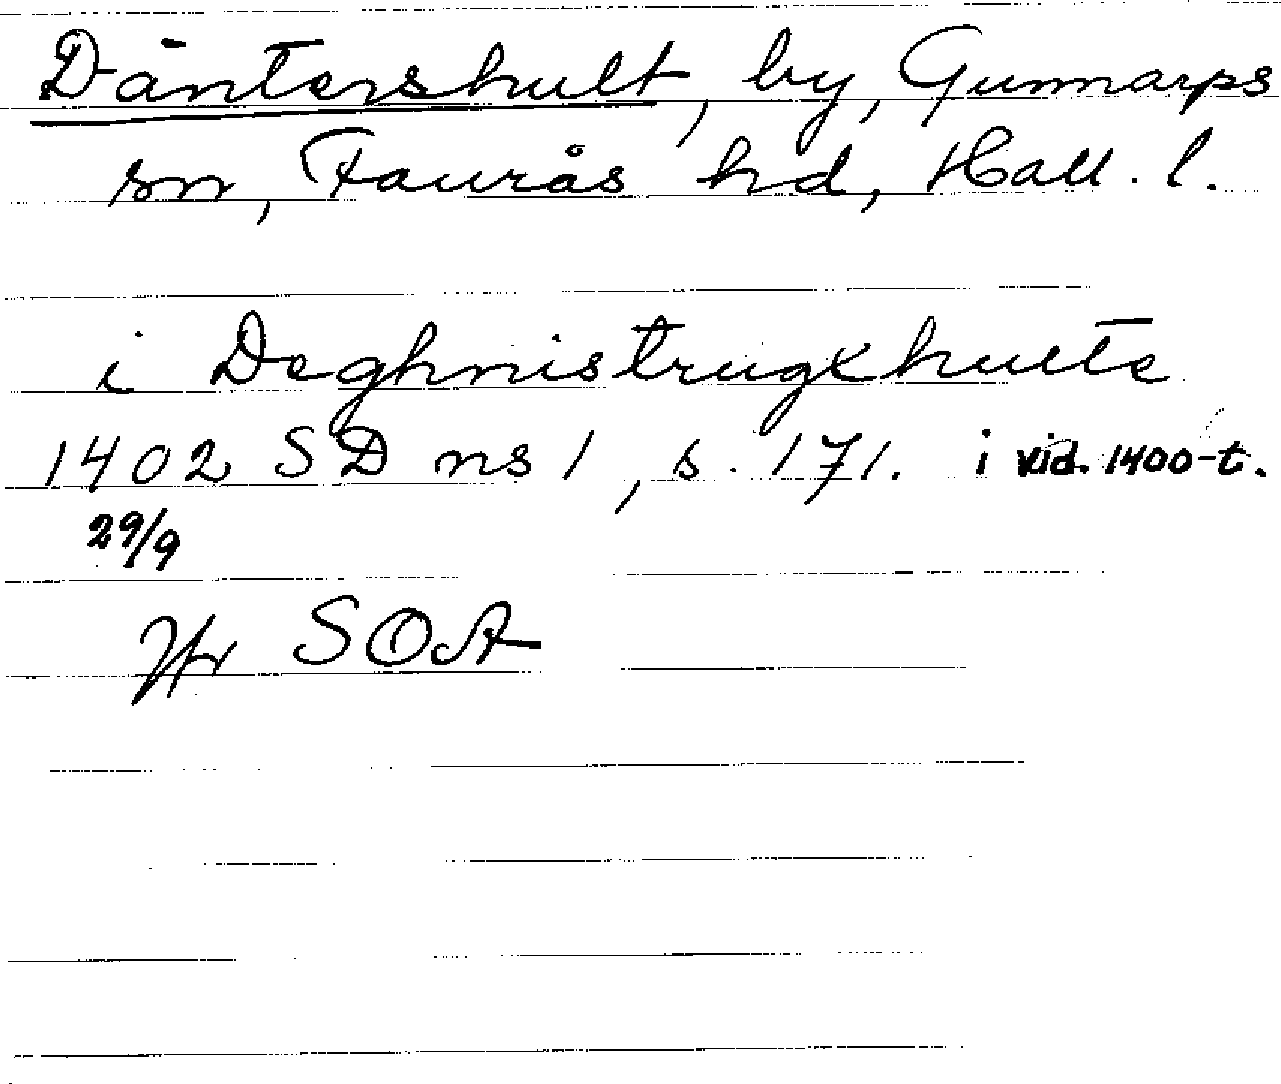 Däntershult, by, Gunnarps
sn, Faurås hd, Hall. l.
i Deghnistrugxhulte
1402 SD ns 1, s. 171. i vid. 1400-t.
29/9
Jfr SOA